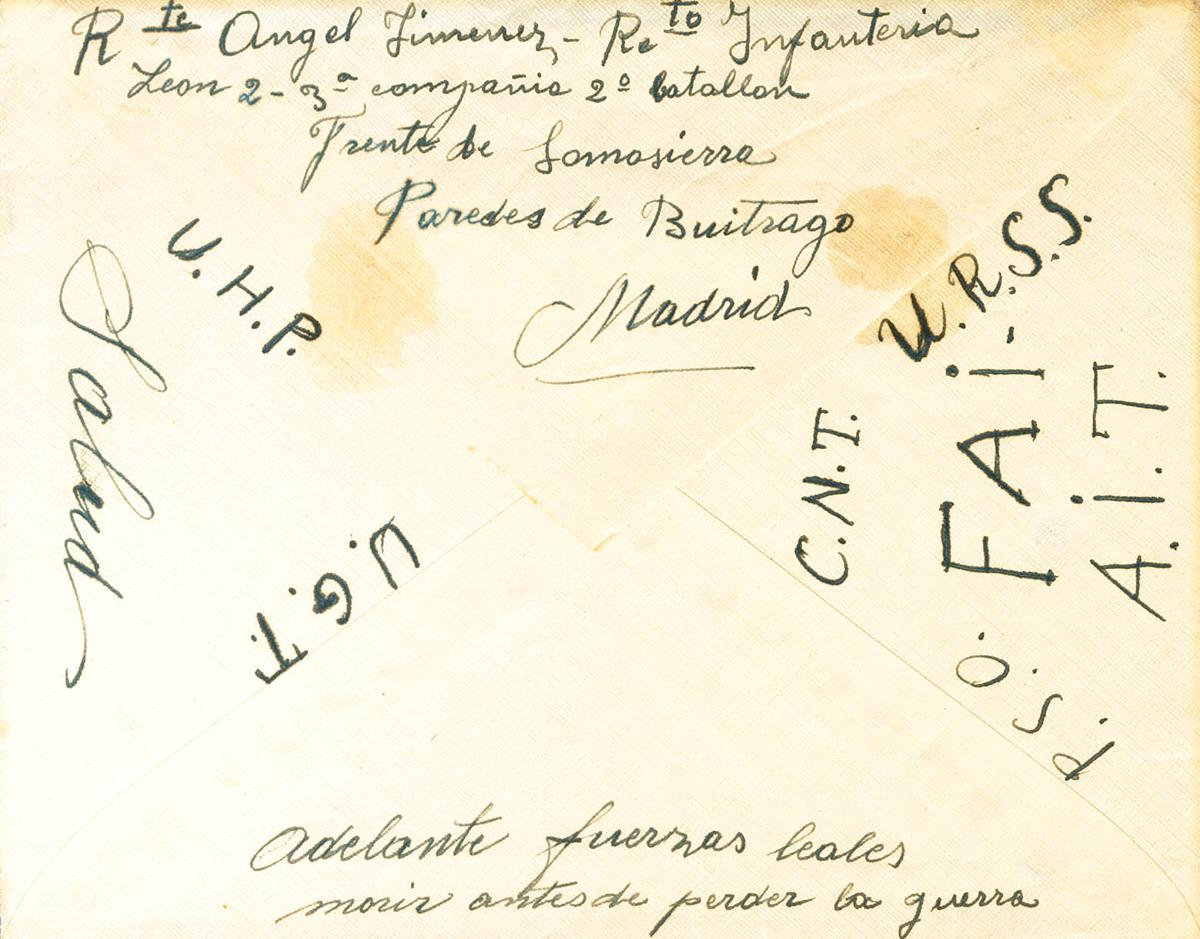 Rte Angel Jimenez - Rto Infanteria
Leon 2 - 3ª compañia 2º batallon
Frente de Somosierra
Paredes de Buitrago
Madrid
U.H.P.
Salud
U.G.T.
U.R.S.S.
C.N.T.
FAi.
A.i.T.
P.S.O.
Adelante fuerzas leales
morir antes de perder la guerra